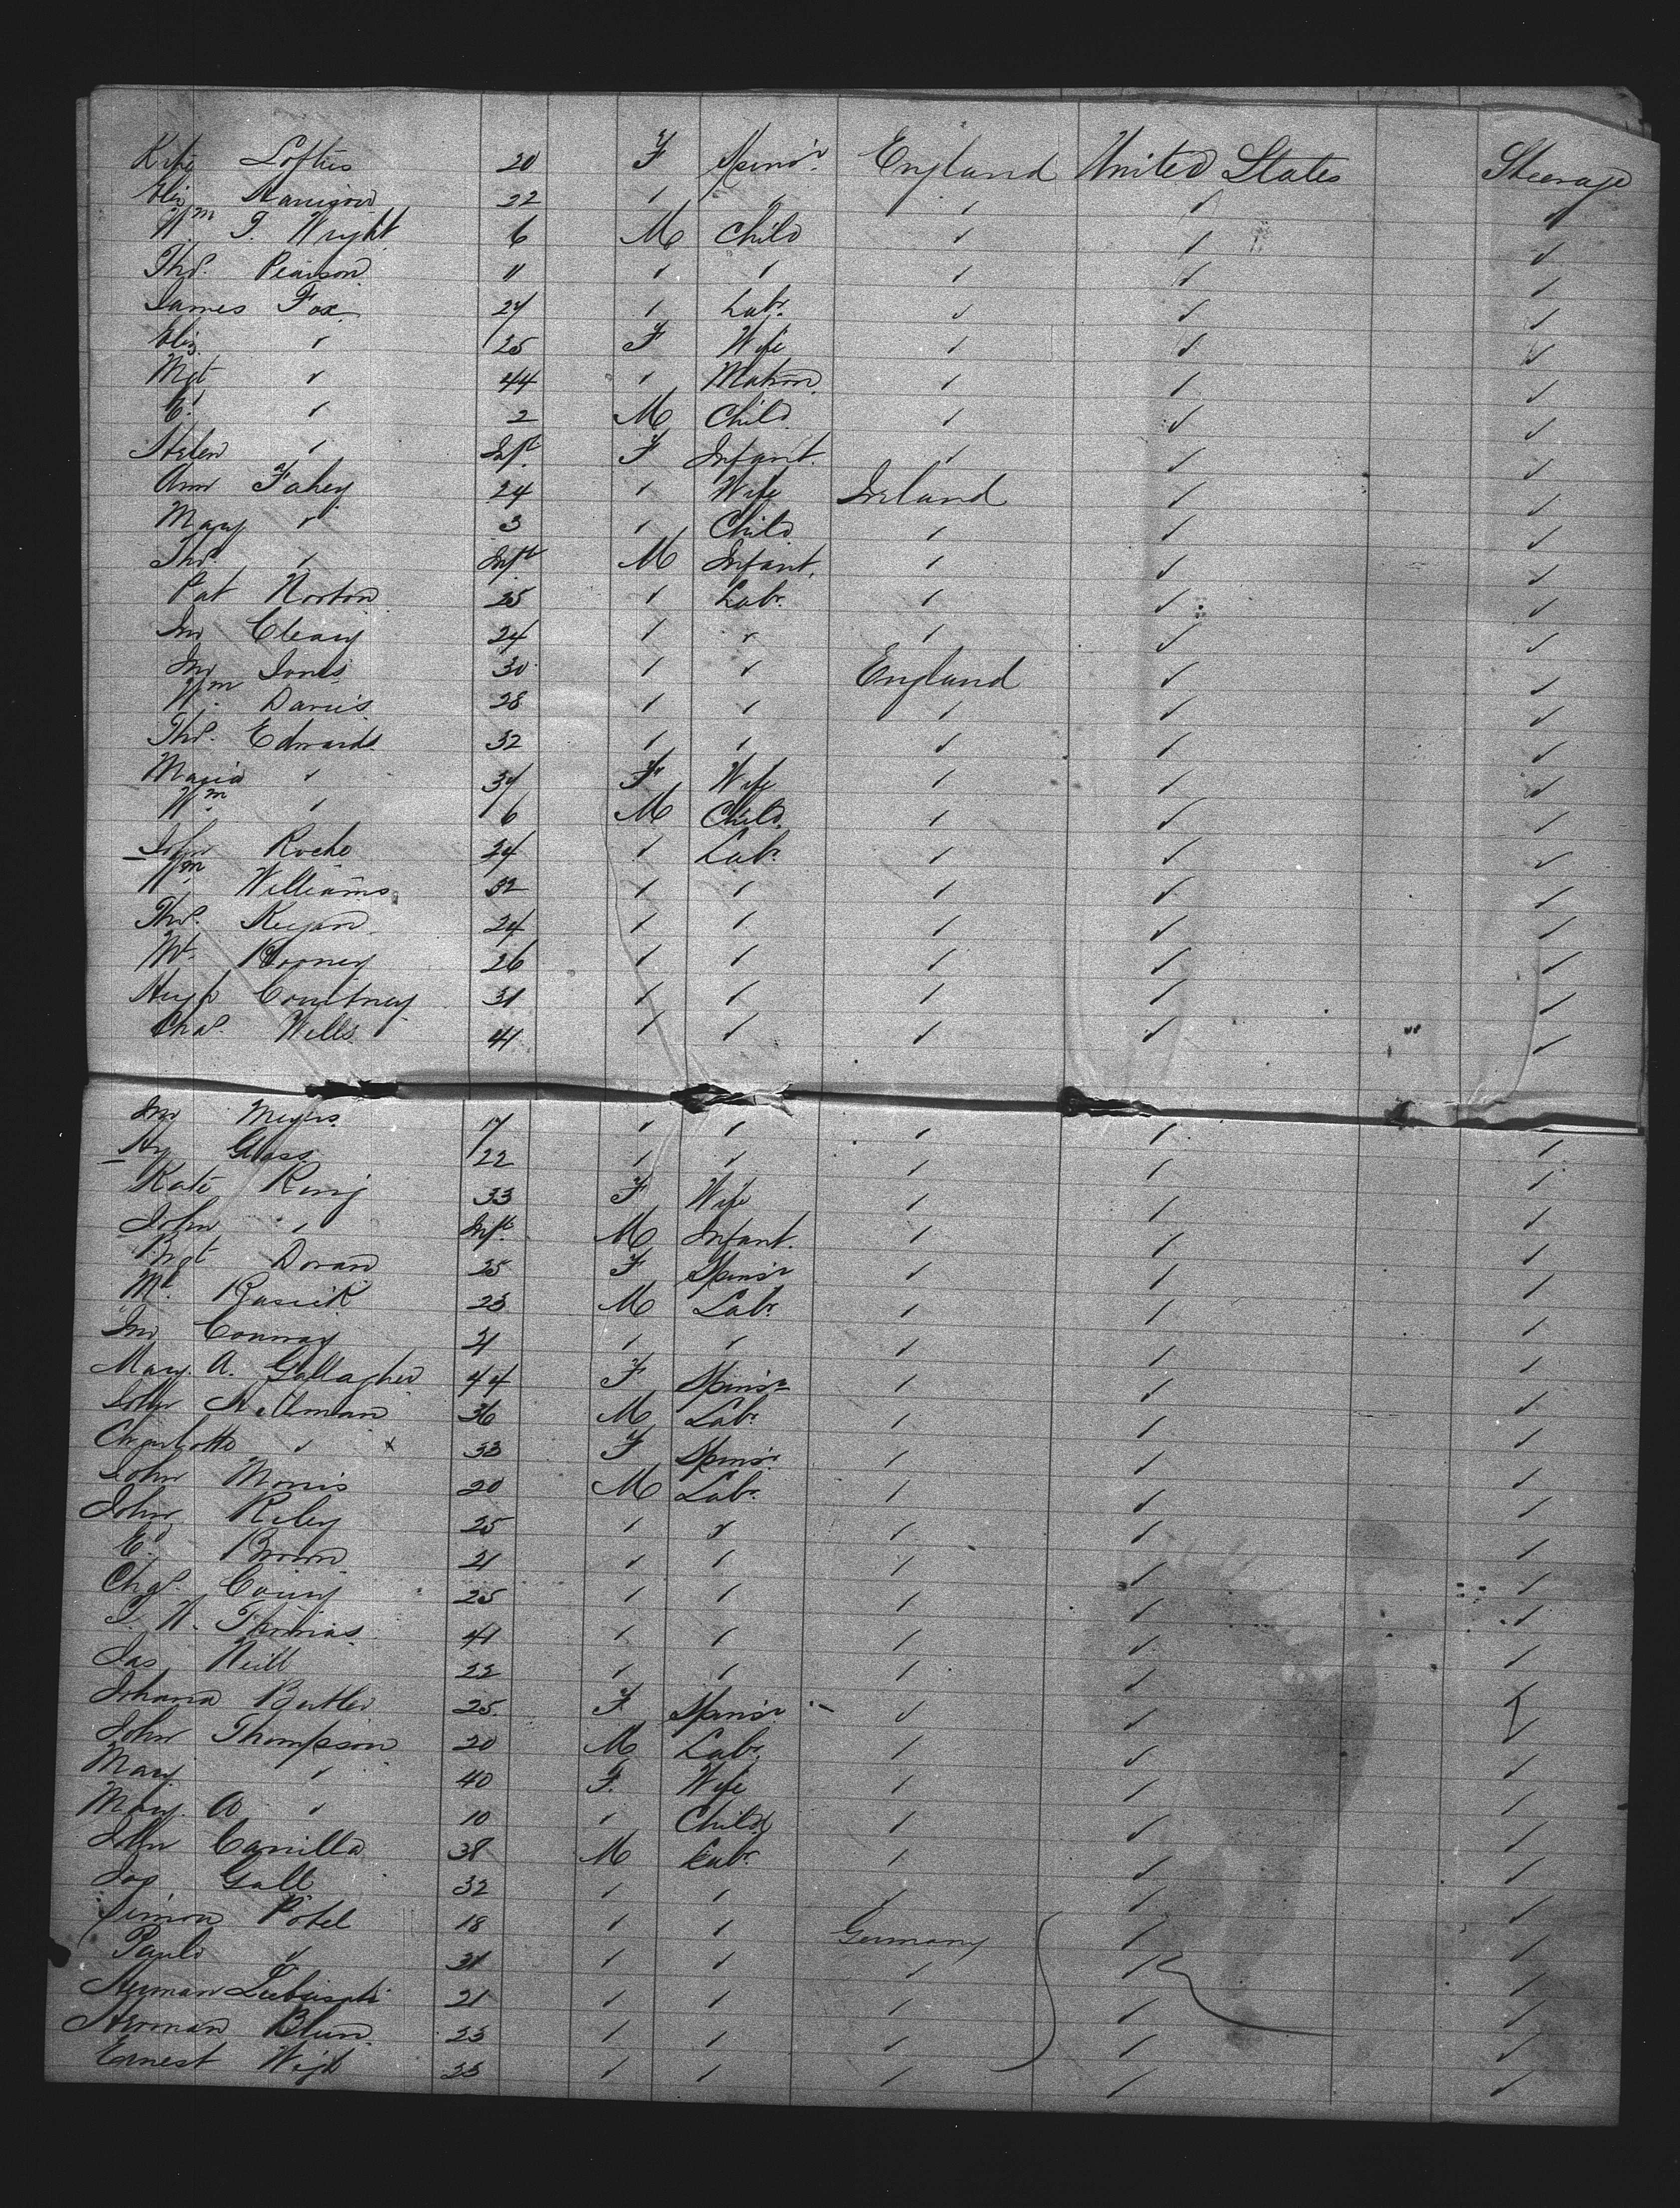 Kate Loftus 20 F Spins'r England United States Steerage
Eliz Harrison 22 " " " " "
Wm T. Wright 6 M Child " " "
Thos. Pearson 11 " " " " "
James Fox 27 " Labr. " " "
Eliz " 25 F Wife " " "
Mgt " 44 " Matron " " "
Ed " 2 M Child " " "
Helen " Inft F Infant. " " "
Ann Fahey 24 " Wife Ireland " "
Mary " 3 " Child " " "
Thos. " Inft M Infant. " " "
Pat Norton 25 " Labr. " " "
Jno Cleary 24 " " " " "
Jno Jones 30 " " England " "
Wm Davies 28 " " " " "
Thos. Edwards 32 " " " " "
Maria " 37 F Wife " " "
Wm " 6 M Child. " " "
John Roche 24 " Labr. " " "
Wm Williams 32 " " " " "
Thos. Keegan 24 " " " " "
Mt. Rooney 26 " " " " "
Hugh Courtney 31 " " " " "
Chas. Wells 41 " " " " "
Jno Meyers 17 " " " " "
Hy Glass 22 " " " " "
Kate King 33 F Wife " " "
John " Inft. M Infant. " " "
Brgt Doran 25 F Spins'r " " "
Mt. 23 M Labr " " "
Jno Conway 21 " " " " "
Mary A. Gallagher 44 F Spins'r " " "
John 36 M Labr " " "
Charlotte " x 33 F Spins'r " " "
John Morris 20 M Labr. " " "
John Riley 25 " " " " "
Ed Brown 21 " " " " "
Chas. 25 " " " " "
J. W. Thomas 41 " " " " "
Jas Neill 22 " " " " "
Johana Butler 25 F Spins'r " " "
John Thompson 20 M Labr. " " "
Mary " 40 F. Wife " " "
Mary A " 10 " Child " " "
John 38 M Labr. " " "
Jas Gall 32 " " " " "
Simon Potel 18 " " Germany " "
Paul " 31 " " " " "
Herman 21 " " " " "
Herman Blum 23 " " " " "
Ernest 23 " " " " "